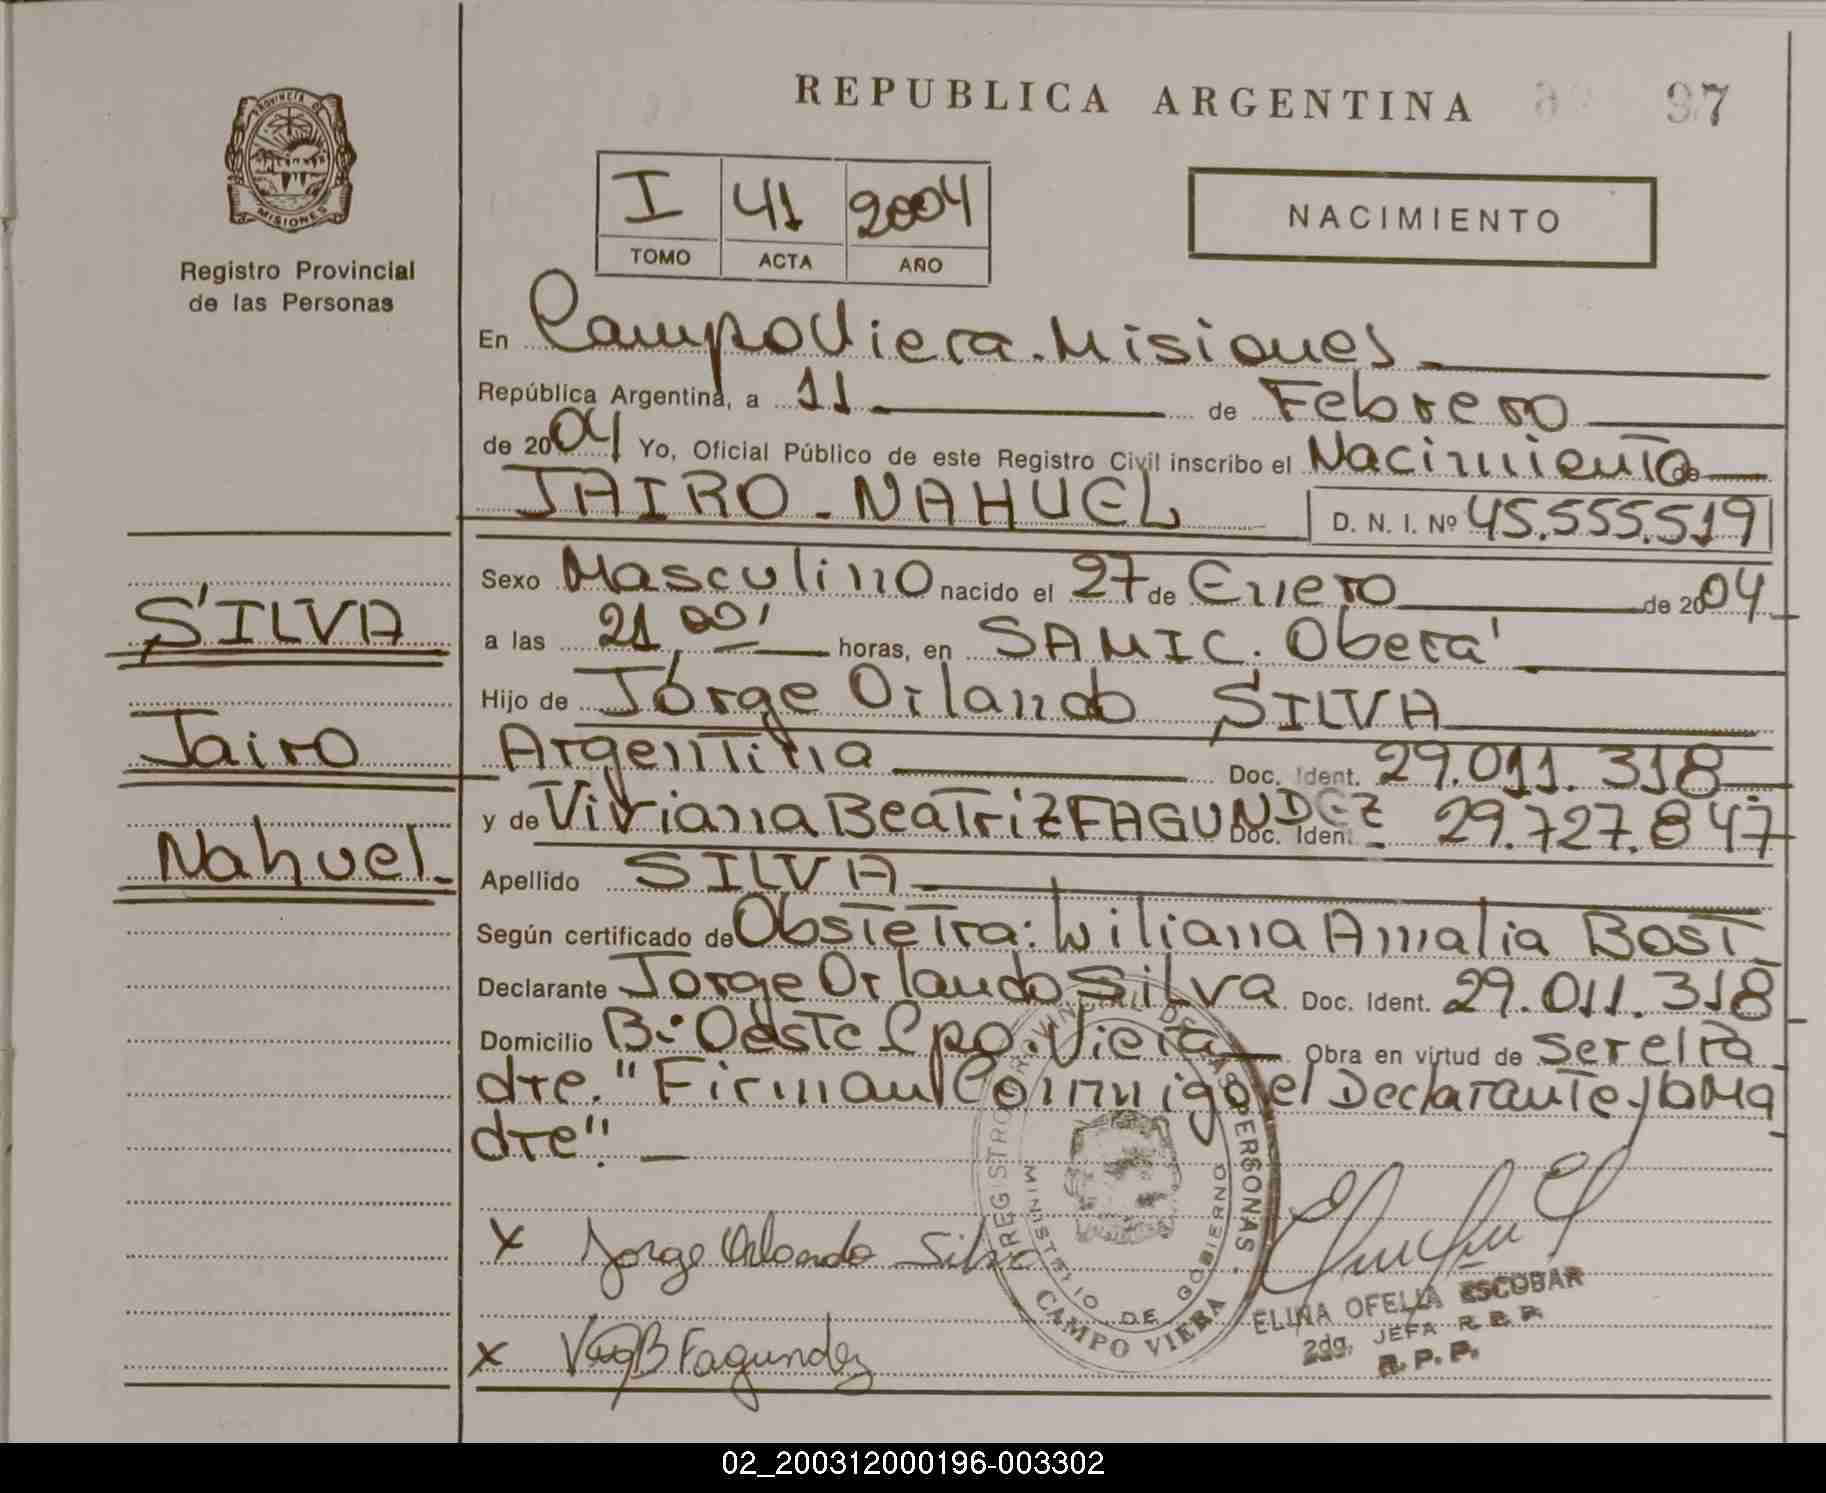 REPUBLICA ARGENTINA
97
PROVINCIA DE
MISIONES
Registro Provincial
de las Personas
I 41 2004
TOMO ACTA AÑO
NACIMIENTO
En Campo Viera. Misiones
República Argentina, a 11 de Febrero
de 2004 Yo, Oficial Público de este Registro Civil inscribo el Nacimiento de
JAIRO - NAHUEL D. N. I. Nº 45.555.519
Sexo Masculino nacido el 27 de Enero de 2004
a las 21,00' horas, en SAMIC. Oberá
Hijo de Jorge Orlando SILVA
Argentina Doc. Ident. 29.011.318
y de Viviana Beatriz FAGUNDEZ Doc. Ident. 29.727.847
Apellido SILVA
Según certificado de Obstetra: Liliana Amalia Bost
Declarante Jorge Orlando Silva Doc. Ident. 29.011.318
Domicilio Bº Oeste Cpo. Viera Obra en virtud de ser el Pa
dre. "Firman Conmigo el Declarante y la Ma
dre".
SILVA
Jairo
Nahuel
X Jorge Orlando Silva
X B Fagundez
REGISTRO PROVINCIAL DE LAS PERSONAS
MINISTERIO DE GOBIERNO
CAMPO VIERA
ELINA OFELIA ESCOBAR
2da. JEFA R. P. P.
R. P. P.
02_200312000196-003302